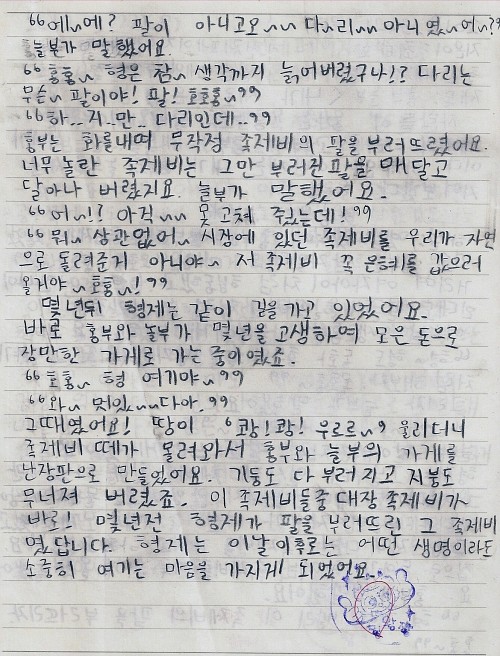 "에~에? 팔이 아니고요~~ 다~리~~아니였~어~??
놀부가 말했어요.
"흥흥~ 형은 참~ 생각까지 늙어버렸구나!? 다리는
무슨~ 팔이야! 팔! 호호흥~"
"하..지.만.. 다리인데.."
흥부는 화를내며 무작정 족제비의 팔을 부러뜨렸어요.
너무 놀란 족제비는 그만 부러진팔을 매달고
달아나 버렸지요. 놀부가 말했어요.
"어~!? 아직~~ 못 고쳐 줬는데!"
"뭐~ 상관없어~ 시장에 있던 족제비를 우리가 자연
으로 돌려준거 아니야~ 저 족제비 꼭 은혜를 갚으러
올거야~호흥~!"
몇년뒤 형제는 같이 길을 가고 있었어요.
바로 흥부와 놀부가 몇년을 고생하여 모은 돈으로
장만한 가게로 가는 중이였죠.
"호흥~ 형 여기야~"
"와~ 멋있~~다아."
그때였어요! 땅이 '쾅!쾅! 우르르~' 울리더니
족제비 떼가 몰려와서 흥부와 놀부의 가게를
난장판으로 만들었어요. 기둥도 다 부러지고 지붕도
무너져 버렸죠. 이 족제비들중 대장 족제비가
바로! 몇년전 형제가 팔을 부러뜨린 그 족제비
였답니다. 형제는 이날이후로는 어떤 생명이라도
소중히 여기는 마음을 가지게 되었었요.